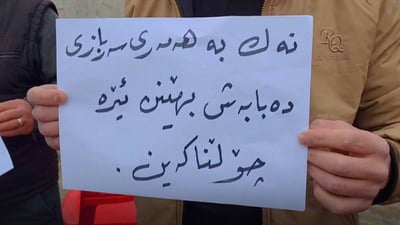 نەك بە هەمەری سەربازی
دەبابەش بهێنن ئێرە
چۆڵناکەین.
RQ